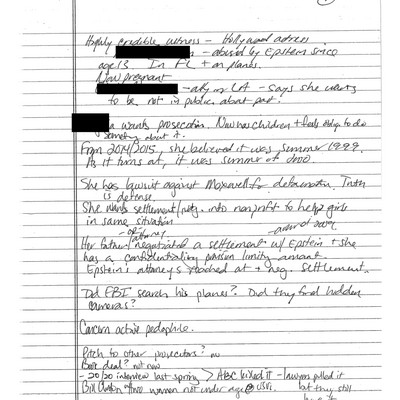 Highly credible witness - Hollywood actress
- abused by Epstein since
age 13 In FL + on planes.
Now pregnant
- atty in LA - says she wants
to be not in public about past.
wants prosecution. Now has children + feels able to do
something about it.
From 2014/2015, she believed it was summer 1999.
As it turns out, it was summer of 2000.
She has lawsuit against Maxwell for defamation, Truth
is defense.
She wants settlement/ into nonprofit to help girls
in same situation
- or attorney
Her father negotiated a settlement w/ Epstein + she
has a confidentiality amount.
Epstein's attorneys reached out + neg. settlement.
Did FBI search his planes? Did they find hidden
cameras?
Concern active pedophile.
Pitch to other prosecutors? no
Book deal? not now
- 20/20 interview last spring > ABC killed it - lawyers pulled it
Bill Clinton women not under age @ USVI. but they still
have it